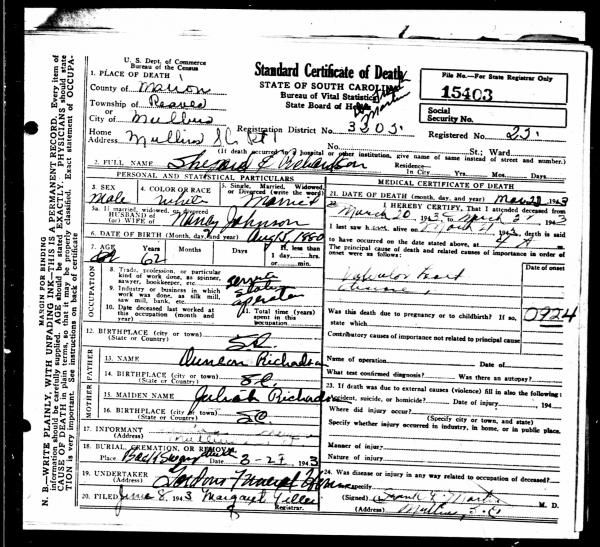 U. S. Dept. of Commerce
Bureau of the Census
Standard Certificate of Death
STATE OF SOUTH CAROLINA
Bureau of Vital Statistics
State Board of Health
File No.—For State Registrar Only
15403
Social
Security No.
1. PLACE OF DEATH
County of Marion
Township of Reaves
or
City of Mullins
Home
Address Mullins S.C. Rt 1
Registration District No. 3303.
Registered No. 22.
St.; Ward
(If death occurred in a hospital or other institution, give name of same instead of street and number.)
2. FULL NAME Richardson
Residence—
In City Yrs. Mos. Days
PERSONAL AND STATISTICAL PARTICULARS
3. SEX
Male
4. COLOR OR RACE
White
5. Single, Married, Widowed,
or Divorced (write the word)
Married
5a. If married, widowed, or divorced
HUSBAND of
(or) WIFE of Johnson
6. DATE OF BIRTH (Month, day, year) Aug 15, 1880
7. AGE Years Months Days If less than
1 day hrs.
or min.
62
OCCUPATION
8. Trade, profession, or particular
kind of work done, as spinner,
sawyer, bookkeeper, etc. Service
9. Industry or business in which
work was done, as silk mill,
saw mill, bank, etc. Station operator
10. Date deceased last worked at
this occupation (month and
year)
11. Total time (years)
spent in this
occupation
12. BIRTHPLACE (city or town)
(State or Country) S.C.
FATHER
13. NAME Duncan Richardson
14. BIRTHPLACE (city or town)
(State or Country) S.C.
MOTHER
15. MAIDEN NAME Juliah Richardson
16. BIRTHPLACE (city or town)
(State or Country) S.C.
17. INFORMANT
(Address) Mullins
18. BURIAL, CREMATION, OR REMOVAL
Place Date 3-27 1943
19. UNDERTAKER Funeral Home
(Address)
20. FILED June 8, 1943 Margaret
Registrar.
MEDICAL CERTIFICATE OF DEATH
21. DATE OF DEATH (month, day, and year) 1943
22. I HEREBY CERTIFY, That I attended deceased from
March 20 1943 to March 1943
I last saw him alive on March 21 1943, death is said
to have occurred on the date stated above, at
The principal cause of death and related causes of importance in order of
onset were as follows:
Date of onset
Valvular Heart
disease
092A
Was this death due to pregnancy or to childbirth? If so,
state which
Contributory causes of importance not related to principal cause
Name of operation Date of
What test confirmed diagnosis? Was there an autopsy?
23. If death was due to external causes (violence) fill in also the following:
Accident, suicide, or homicide? Date of injury 194
Where did injury occur?
(Specify city or town, and state)
Specify whether injury occurred in industry, in home, or in public place.
Manner of injury
Nature of injury
24. Was disease or injury in any way related to occupation of deceased?
If so, specify
(Signed) Frank Martin M. D.
(Address) Mullins, S.C.
MARGIN FOR BINDING
N. B.—WRITE PLAINLY, WITH UNFADING INK—THIS IS A PERMANENT RECORD. Every item of
information should be carefully supplied. AGE should be stated EXACTLY. PHYSICIANS should state
CAUSE OF DEATH in plain terms, so that it may be properly classified. Exact statement of OCCUPA-
TION is very important. See instructions on back of certificate